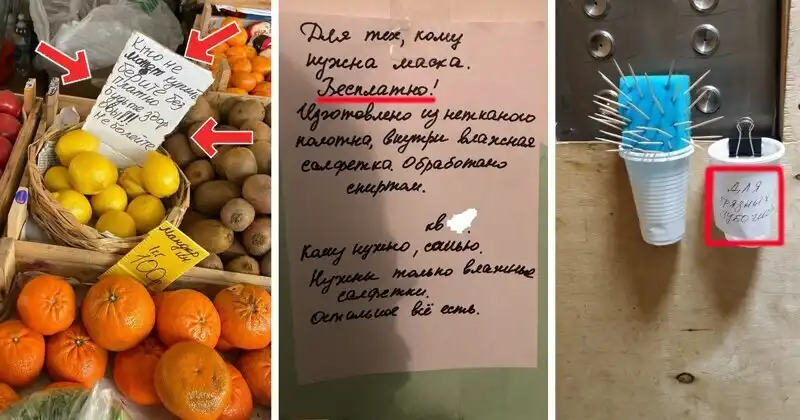 Кто не
может купить
берите бес
платно
Будте здор
овы!!!
не болейте
Мандарин
1кг
100р
Для тех, кому
нужна маска.
Бесплатно!
Изготовлено из нетканого
полотна, внутри влажная
салфетка. Обработано
спиртом.
кв
Кому нужно, сошью.
Нужны только влажные
салфетки.
Остальное всё есть.
ДЛЯ
ГРЯЗНЫХ
ЗУБОЧИСТОК